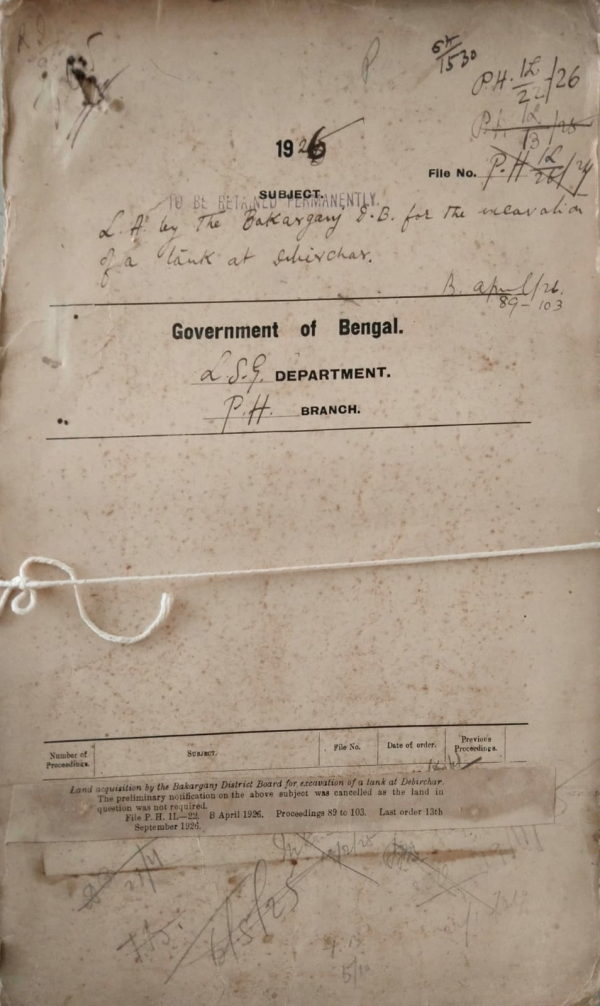 P.H. 1L/22/26
1926
File No. P.H 1L/26/24
SUBJECT.
TO BE RETAINED PERMANENTLY.
L.A. by the Bakarganj D.B. for the excavation
of a tank at Debirchar.
B. April/26.
89-103
Government of Bengal.
L.S.G. DEPARTMENT.
P.H. BRANCH.
Number of Proceedings. SUBJECT. File No. Date of order. Previous Proceedings.
Land acquisition by the Bakarganj District Board for excavation of a tank at Debirchar.
The preliminary notification on the above subject was cancelled as the land in
question was not required.
File P. H. 1L—22. B April 1926. Proceedings 89 to 103. Last order 13th
September 1926.
6/5/25